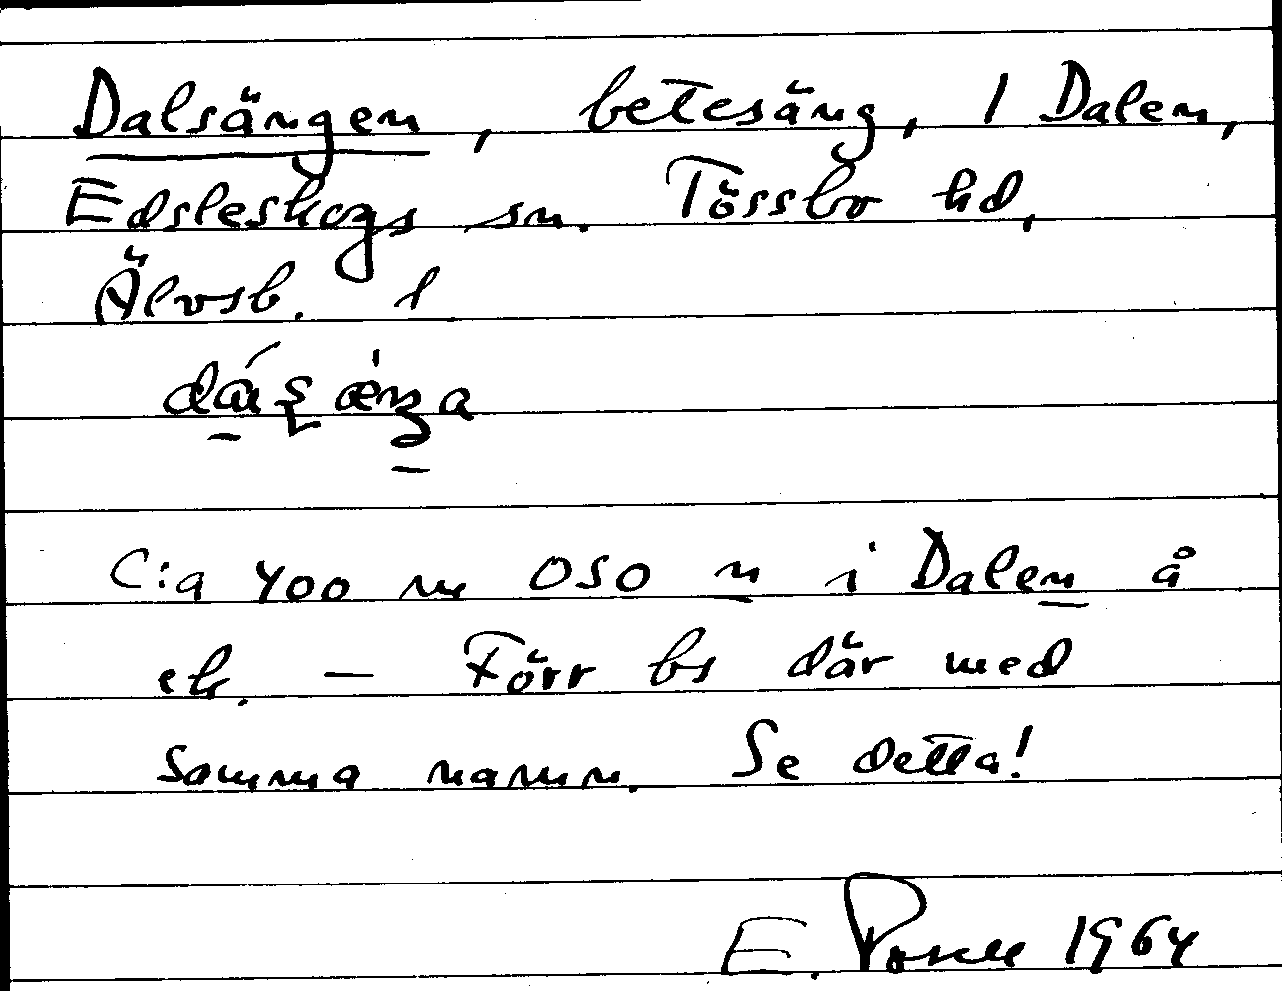 Dalsängen, betesäng, 1 Dalen,
Edsleskogs sn. Tössbo hd,
Älvsb. l
C:a 400 m OSO n i Dalen å
ek. — Förr bs där med
samma namn. Se detta!
E. 1964